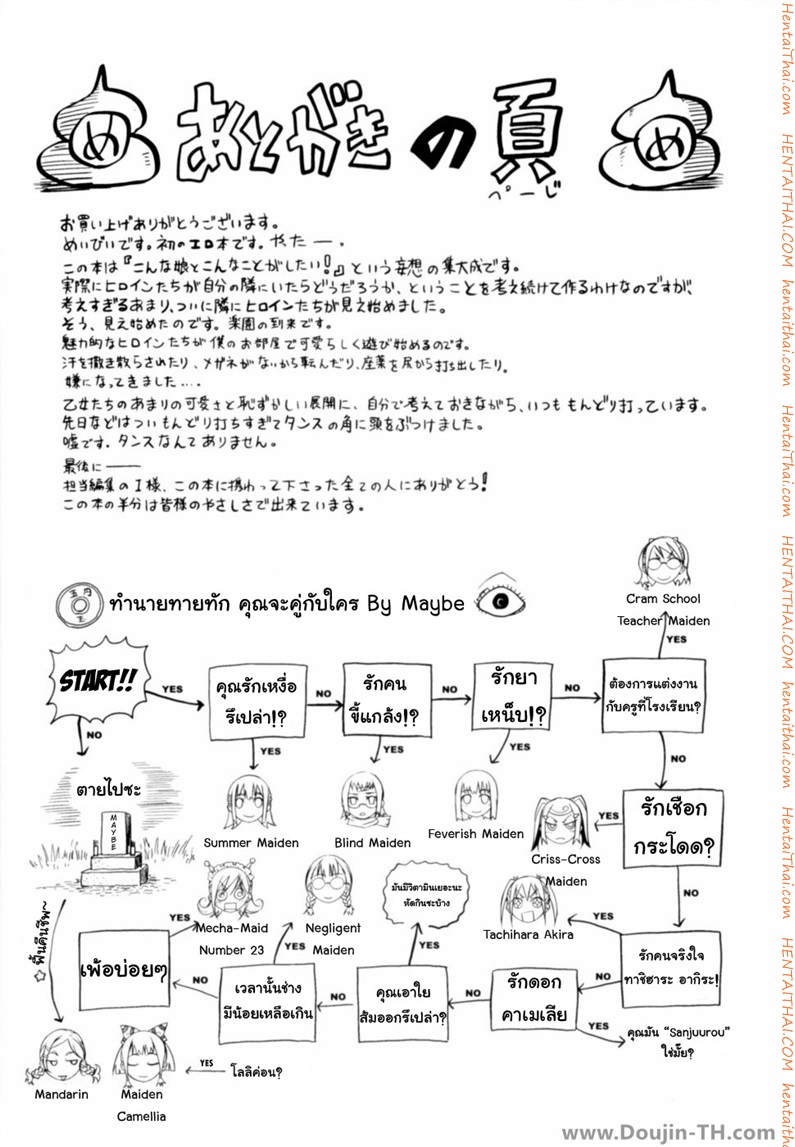 め
あとがきの頁
ぺーじ
め
お買い上げありがとうございます。
めいびいです。初のエロ本です。やたー。
この本は『こんな娘とこんなことがしたい!』という妄想の集大成です。
実際にヒロインたちが自分の隣にいたらどうだろうか、ということを考え続けて作るわけなのですが、
考えすぎるあまり、ついに隣にヒロインたちが見え始めました。
そう、見え始めたのです。楽園の到来です。
魅力的なヒロインたちが僕のお部屋で可愛らしく遊び始めるのです。
汗を撒き散らされたり、メガネがないから転んだり、座薬を尻から打ち出したり。
嫌になってきました....
乙女たちのあまりの可愛さと恥ずかしい展開に、自分で考えておきながら、いつももんどり打っています。
先日などはついもんどり打ちすぎてタンスの角に頭をぶつけました。
嘘です。タンスなんてありません。
最後に――
担当編集のI様、この本に携わって下さった全ての人にありがとう!
この本の半分は皆様のやさしさで出来ています。
ทำนายทายทัก คุณจะคู่กับใคร By Maybe
Cram School
Teacher Maiden
YES
START!!
YES
คุณรักเหงื่อ
รึเปล่า!?
NO
รักคน
ขี้แกล้ง!?
NO
รักยา
เหน็บ!?
NO
ต้องการแต่งงาน
กับครูที่โรงเรียน?
NO
YES
YES
YES
NO
ตายไปซะ
MAYBE
Summer Maiden
Blind Maiden
Feverish Maiden
Criss-Cross
Maiden
YES
รักเชือก
กระโดด?
NO
Mecha-Maid
Number 23
Negligent
Maiden
มันมีวิตามินเยอะนะ
หัดกินซะบ้าง
Tachihara Akira
YES
YES
YES
YES
☆ ฟื้นคืนชีพ~
เพ้อบ่อยๆ
NO
เวลานั้นช่าง
มีน้อยเหลือเกิน
NO
คุณเอาใย
ส้มออกรึเปล่า?
NO
รักดอก
คาเมเลีย
NO
รักคนจริงใจ
ทาชิฮาระ อากิระ!
YES
คุณมัน “Sanjuurou”
ใช่มั๊ย?
Mandarin
Maiden
Camellia
YES
โลลิค่อน?
www.Doujin-TH.com
HentaiThai.com HENTAITHAI.COM hentaithai.com HentaiThai.com HENTAITHAI.COM hentaithai.com HentaiThai.com HENTAITHAI.COM hentaithai.com